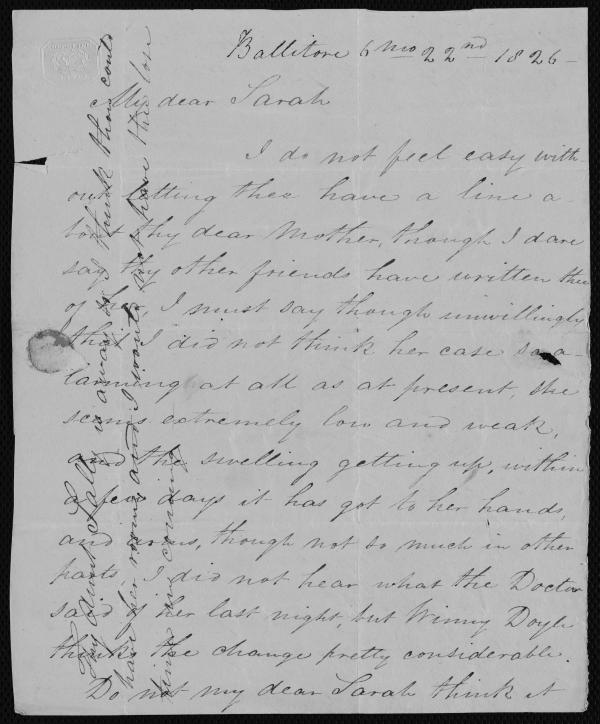 Ballitore 6mo 22nd 1826-
My dear Sarah
I do not feel easy with-
out letting thee have a line a-
bout thy dear Mother, though I dare
say thy other friends have written thee
of her, I must say though unwillingly
that I did not think her case so a-
larming at all as at present, she
seems extremely low and weak,
and the swelling getting up, within
a few days it has got to her hands,
and arms, though not so much in other
parts, I did not hear what the Doctor
said of her last night, but Winny Doyle
thinks the change pretty considerable.
Do not my dear Sarah think it
Thy aunt Sally is away so I think thou could
have her room, and I would not have thee lose
time in coming